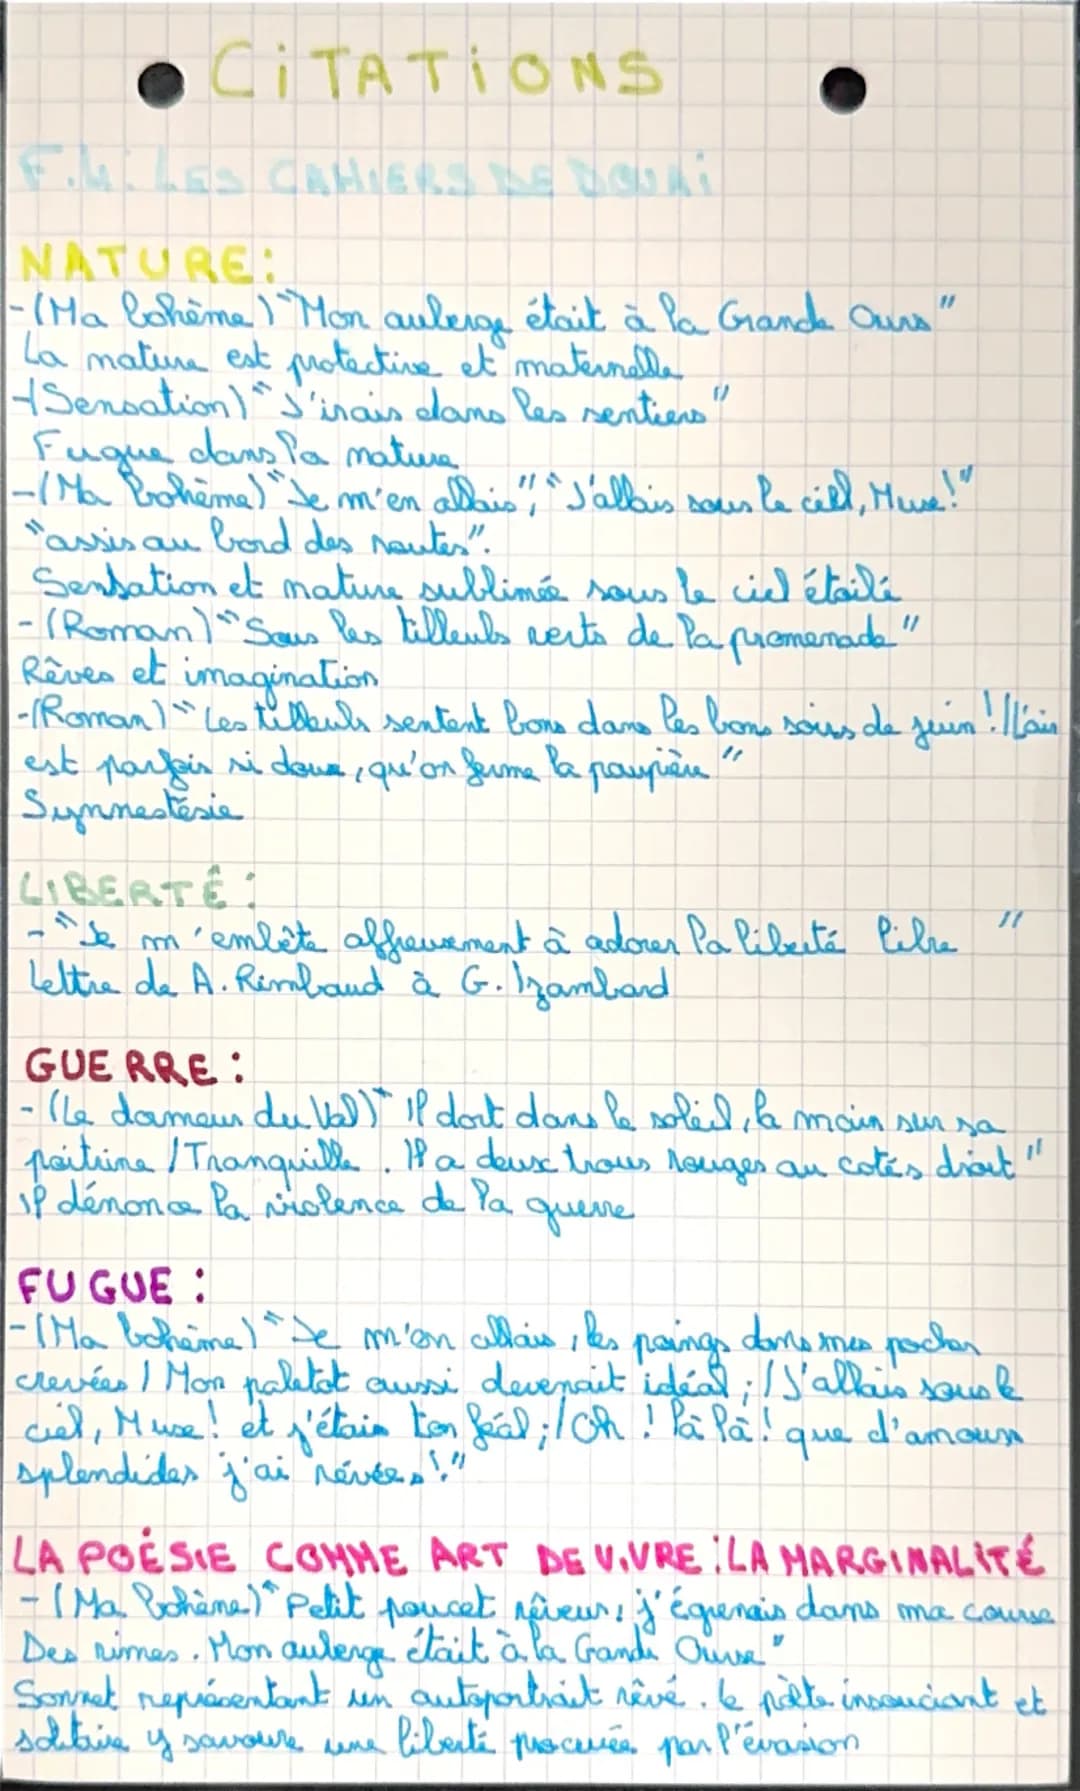 CiTATiONS
F.4: LES CAHIERS DE DOUAi
NATURE:
- (Ma bohème) "Mon auberge était à la Grande Ours"
La nature est protective et maternelle
- (Sensation) "J'irais dans les sentiers"
Fugue dans la nature
- (Ma bohème) "Je m'en allais", "J'allais sous le ciel, Muse!"
"assis au bord des routes".
Sensation et nature sublimée sous le ciel étoilé
- (Roman) "Sous les tilleuls verts de la promenade"
Rêves et imagination
- (Roman) "Les tilleuls sentent bons dans les bons soirs de juin!/L'air
est parfois si doux, qu'on ferme la paupière"
Synnestésie
LIBERTÉ:
- "Je m'embête affreusement à adorer la liberté libre"
Lettre de A. Rimbaud à G. Izambard
GUERRE:
- (Le dormeur du Val) "Il dort dans le soleil, la main sur sa
poitrine / Tranquille. Il a deux trous rouges au cotés droit"
il dénonce la violence de la guerre
FUGUE:
- (Ma bohème) "Je m'en allais, les poings dans mes poches
crevées / Mon paletot aussi devenait idéal; / J'allais sous le
ciel, Muse! et j'étais ton féal; / Oh! là là! que d'amours
splendides j'ai révées!"
LA POÉSIE COMME ART DE VIVRE: LA MARGINALITÉ
- (Ma bohème) "Petit poucet rêveur, j'égrenais dans ma course
Des rimes. Mon auberge était à la Grande Ourse"
Sonnet représentant un autoportrait rêvé. le poète insouciant et
solitaire y savoure une liberté procurée par l'évasion